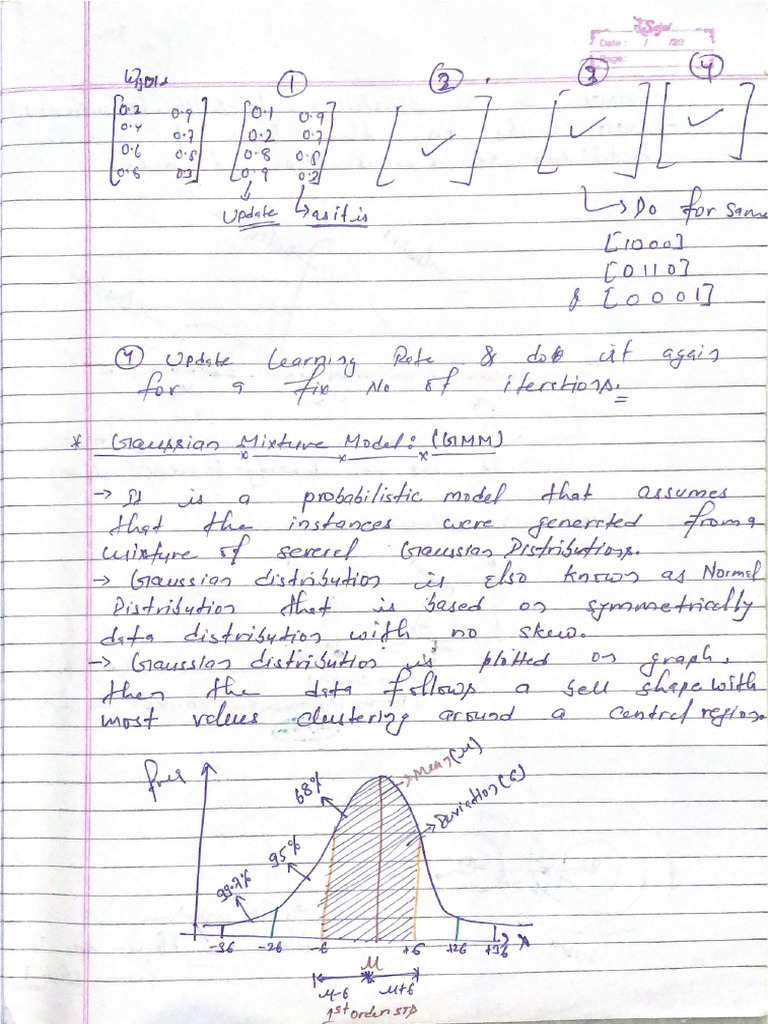 Sajal
Date : / /20
Page :
① ② 3 4
0.2 0.9
0.4 0.7
0.6 0.5
0.8 0.3
0.1 0.9
0.2 0.7
0.8 0.5
0.9 0.3
✓ ✓ ✓
Update as it is
Do for same
[1000]
[0110]
& [0001]
④ Update Learning Rate & do it again
for a fix No of iterations.
* Gaussian Mixture Model: (GMM)
→ It is a probabilistic model that assumes
that the instances were generated from a
mixture of several Gaussian Distributions.
→ Gaussian distribution is also known as Normal
Distribution that is based on symmetrically
data distribution with no skew.
→ Gaussian distribution is plotted on graph,
then the data follows a bell shape with
most values clustering around a central region.
68% Mean(μ)
Deviation(σ)
95%
99.7%
-3σ -2σ -σ +σ +2σ +3σ x
μ
μ-σ μ+σ
1st order STD